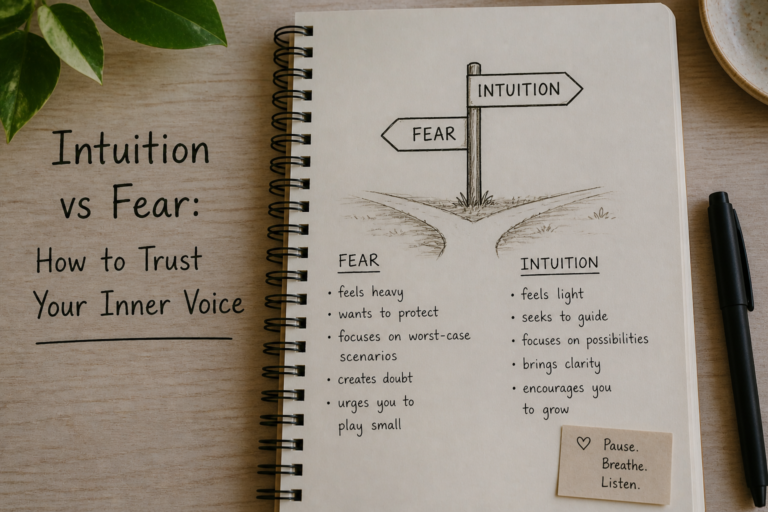 Intuition
vs Fear:
How to Trust
Your Inner Voice
INTUITION
FEAR
FEAR
• feels heavy
• wants to protect
• focuses on worst-case
scenarios
• creates doubt
• urges you to
play small
INTUITION
• feels light
• seeks to guide
• focuses on possibilities
• brings clarity
• encourages you
to grow
♡ Pause.
Breathe.
Listen.